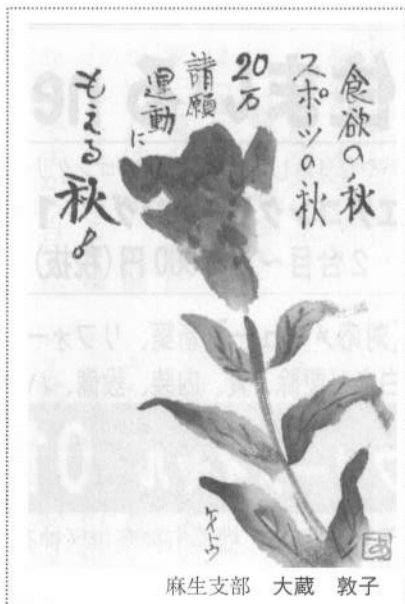 食欲の秋
スポーツの秋
20万
請願
運動に
もえる秋!
ケイトウ
あ
麻生支部 大蔵 敦子